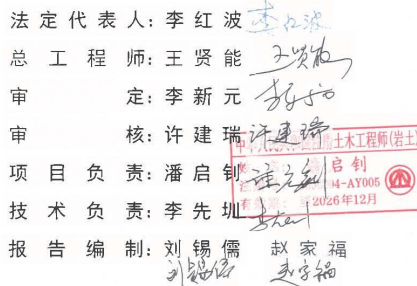 法定代表人：李红波 李红波
总工程师：王贤能 王贤能
审定：李新元
审核：许建瑞 许建瑞
项目负责：潘启钊
技术负责：李先圳
报告编制：刘锡儒 赵家福
刘锡儒 赵家福
土木工程师(岩土)
启钊
04-AY005
2026年12月